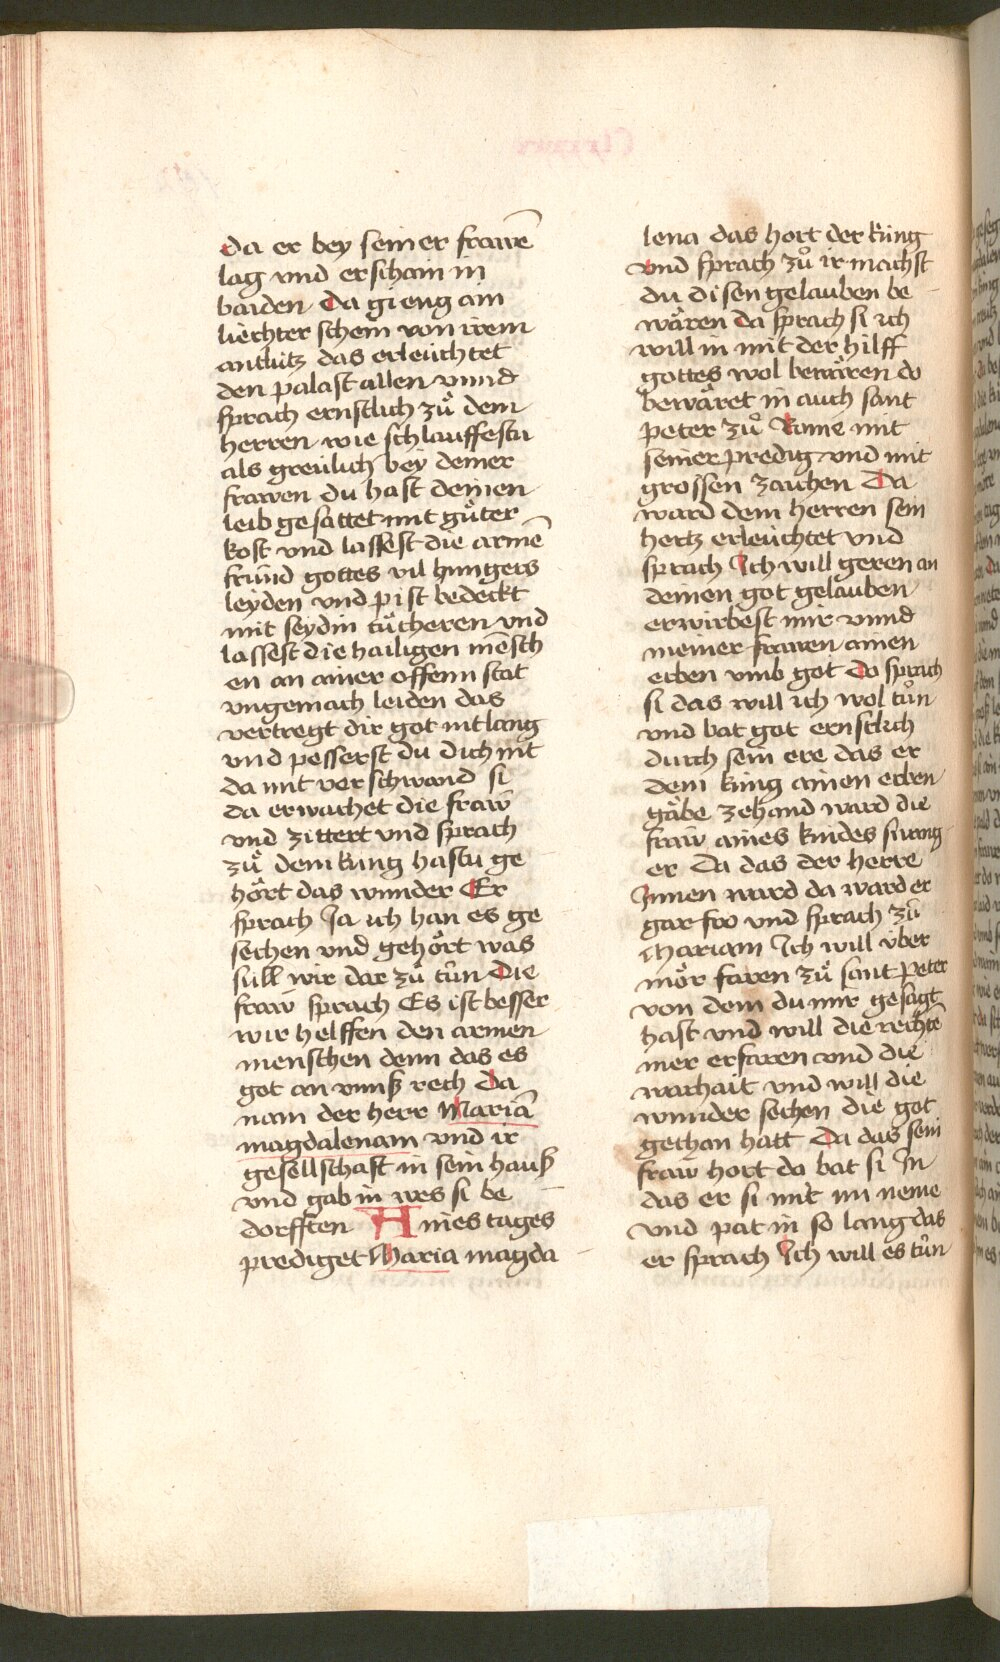 da er bey seiner frawē
lag vnd erschain in
baiden Da gieng ain
liechter schein von irem
antlütz das erleüchtet
den palast allen vnnd
sprach ernstlich zů dem
herren wie schlauffestu
als greülich bey deiner
frawen du hast deinen
leib gesattet mit gůter
kost vnd lassest die armē
fründ gottes vil hungers
leyden vnd pist bedeckt
mit seydin tücheren vnd
lassest die hailigen mēsch
en an ainer offenn stat
vngemach leiden das
vertregt dir got nit lang
vnd pesserst du dich nit
da mit verschwand si
da erwachet die fraw
vnd zittert vnd sprach
zů dem küng hastu ge
hört das wunder Er
sprach Ja ich han es ge
sechen vnd gehört was
süll wir dar zů tůn Die
fraw sprach Es ist besser
wir helffen den armen
menschen denn das es
got an vnnß rech Da
nam der herr Mariā
magdalenam vnd ir
gesellschaft in sein hauß
vnd gab in wes si be
dorfften Aines tages
prediget Maria magda
lena das hort der küng
vnd sprach zů ir machst
du disen gelauben be
wären da sprach si ich
will in mit der hilff
gottes wol bewären do
bewäret in auch sant
peter zů Rome mit
seiner predig vnd mit
grossen zaichen Da
ward dem herren sein
hertz erleüchtet vnd
sprach Ich will geren an
deinen got gelauben
erwirbest mir vnnd
meiner frawen ainen
erben vmb got Do sprach
si das will ich wol tůn
vnd bat got ernstlich
durch sein ere das er
dem küng ainen erben
gäbe zehand ward die
fraw aines kindes swang
er Da das der herre
Innen ward da ward er
gar fro vnd sprach zů
Mariam Ich will über
mör faren zů sant peter
von dem du mir gesagt
hast vnd will die rechtē
mer erfaren vnd die
warhait vnd will die
wunder sechen die got
gethan hatt Da das sein
fraw hort do bat si In
das er si mit im neme
vnd pat in so lang das
er sprach Ich will es tůn